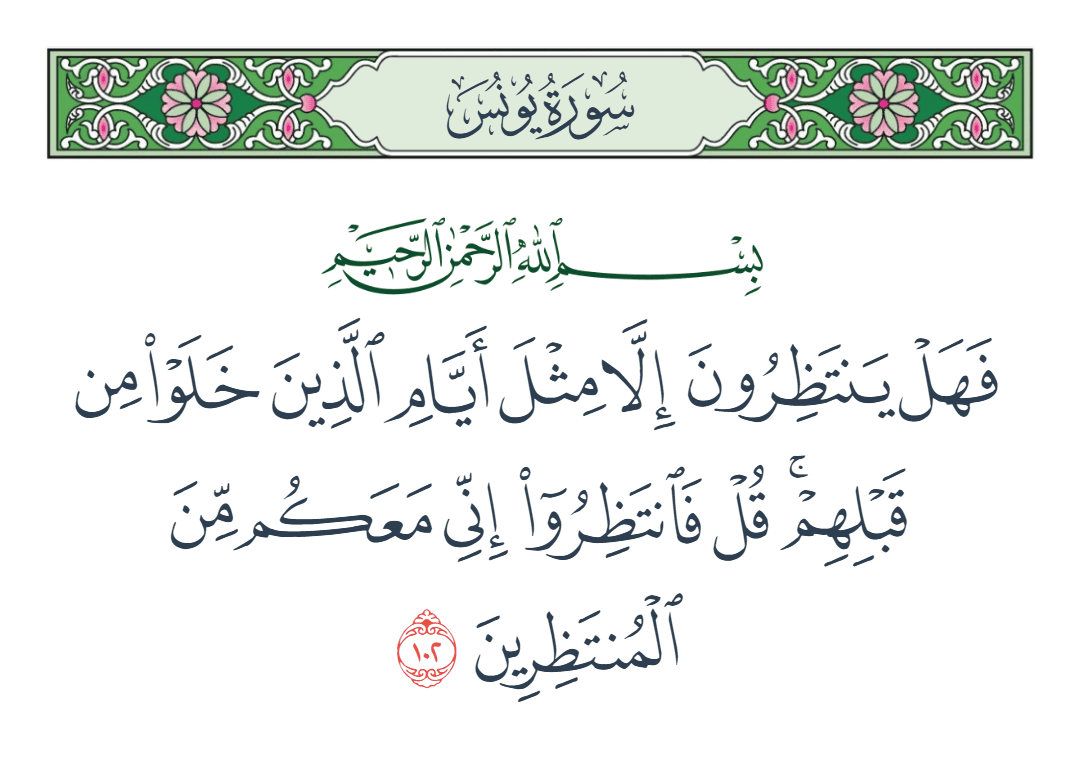 سُورَةُ يُونُسَ
بِسْمِ ٱللَّهِ ٱلرَّحْمَٰنِ ٱلرَّحِيمِ
فَهَلْ يَنتَظِرُونَ إِلَّا مِثْلَ أَيَّامِ ٱلَّذِينَ خَلَوْا۟ مِن
قَبْلِهِمْ ۚ قُلْ فَٱنتَظِرُوٓا۟ إِنِّى مَعَكُم مِّنَ
ٱلْمُنتَظِرِينَ ١٠٢